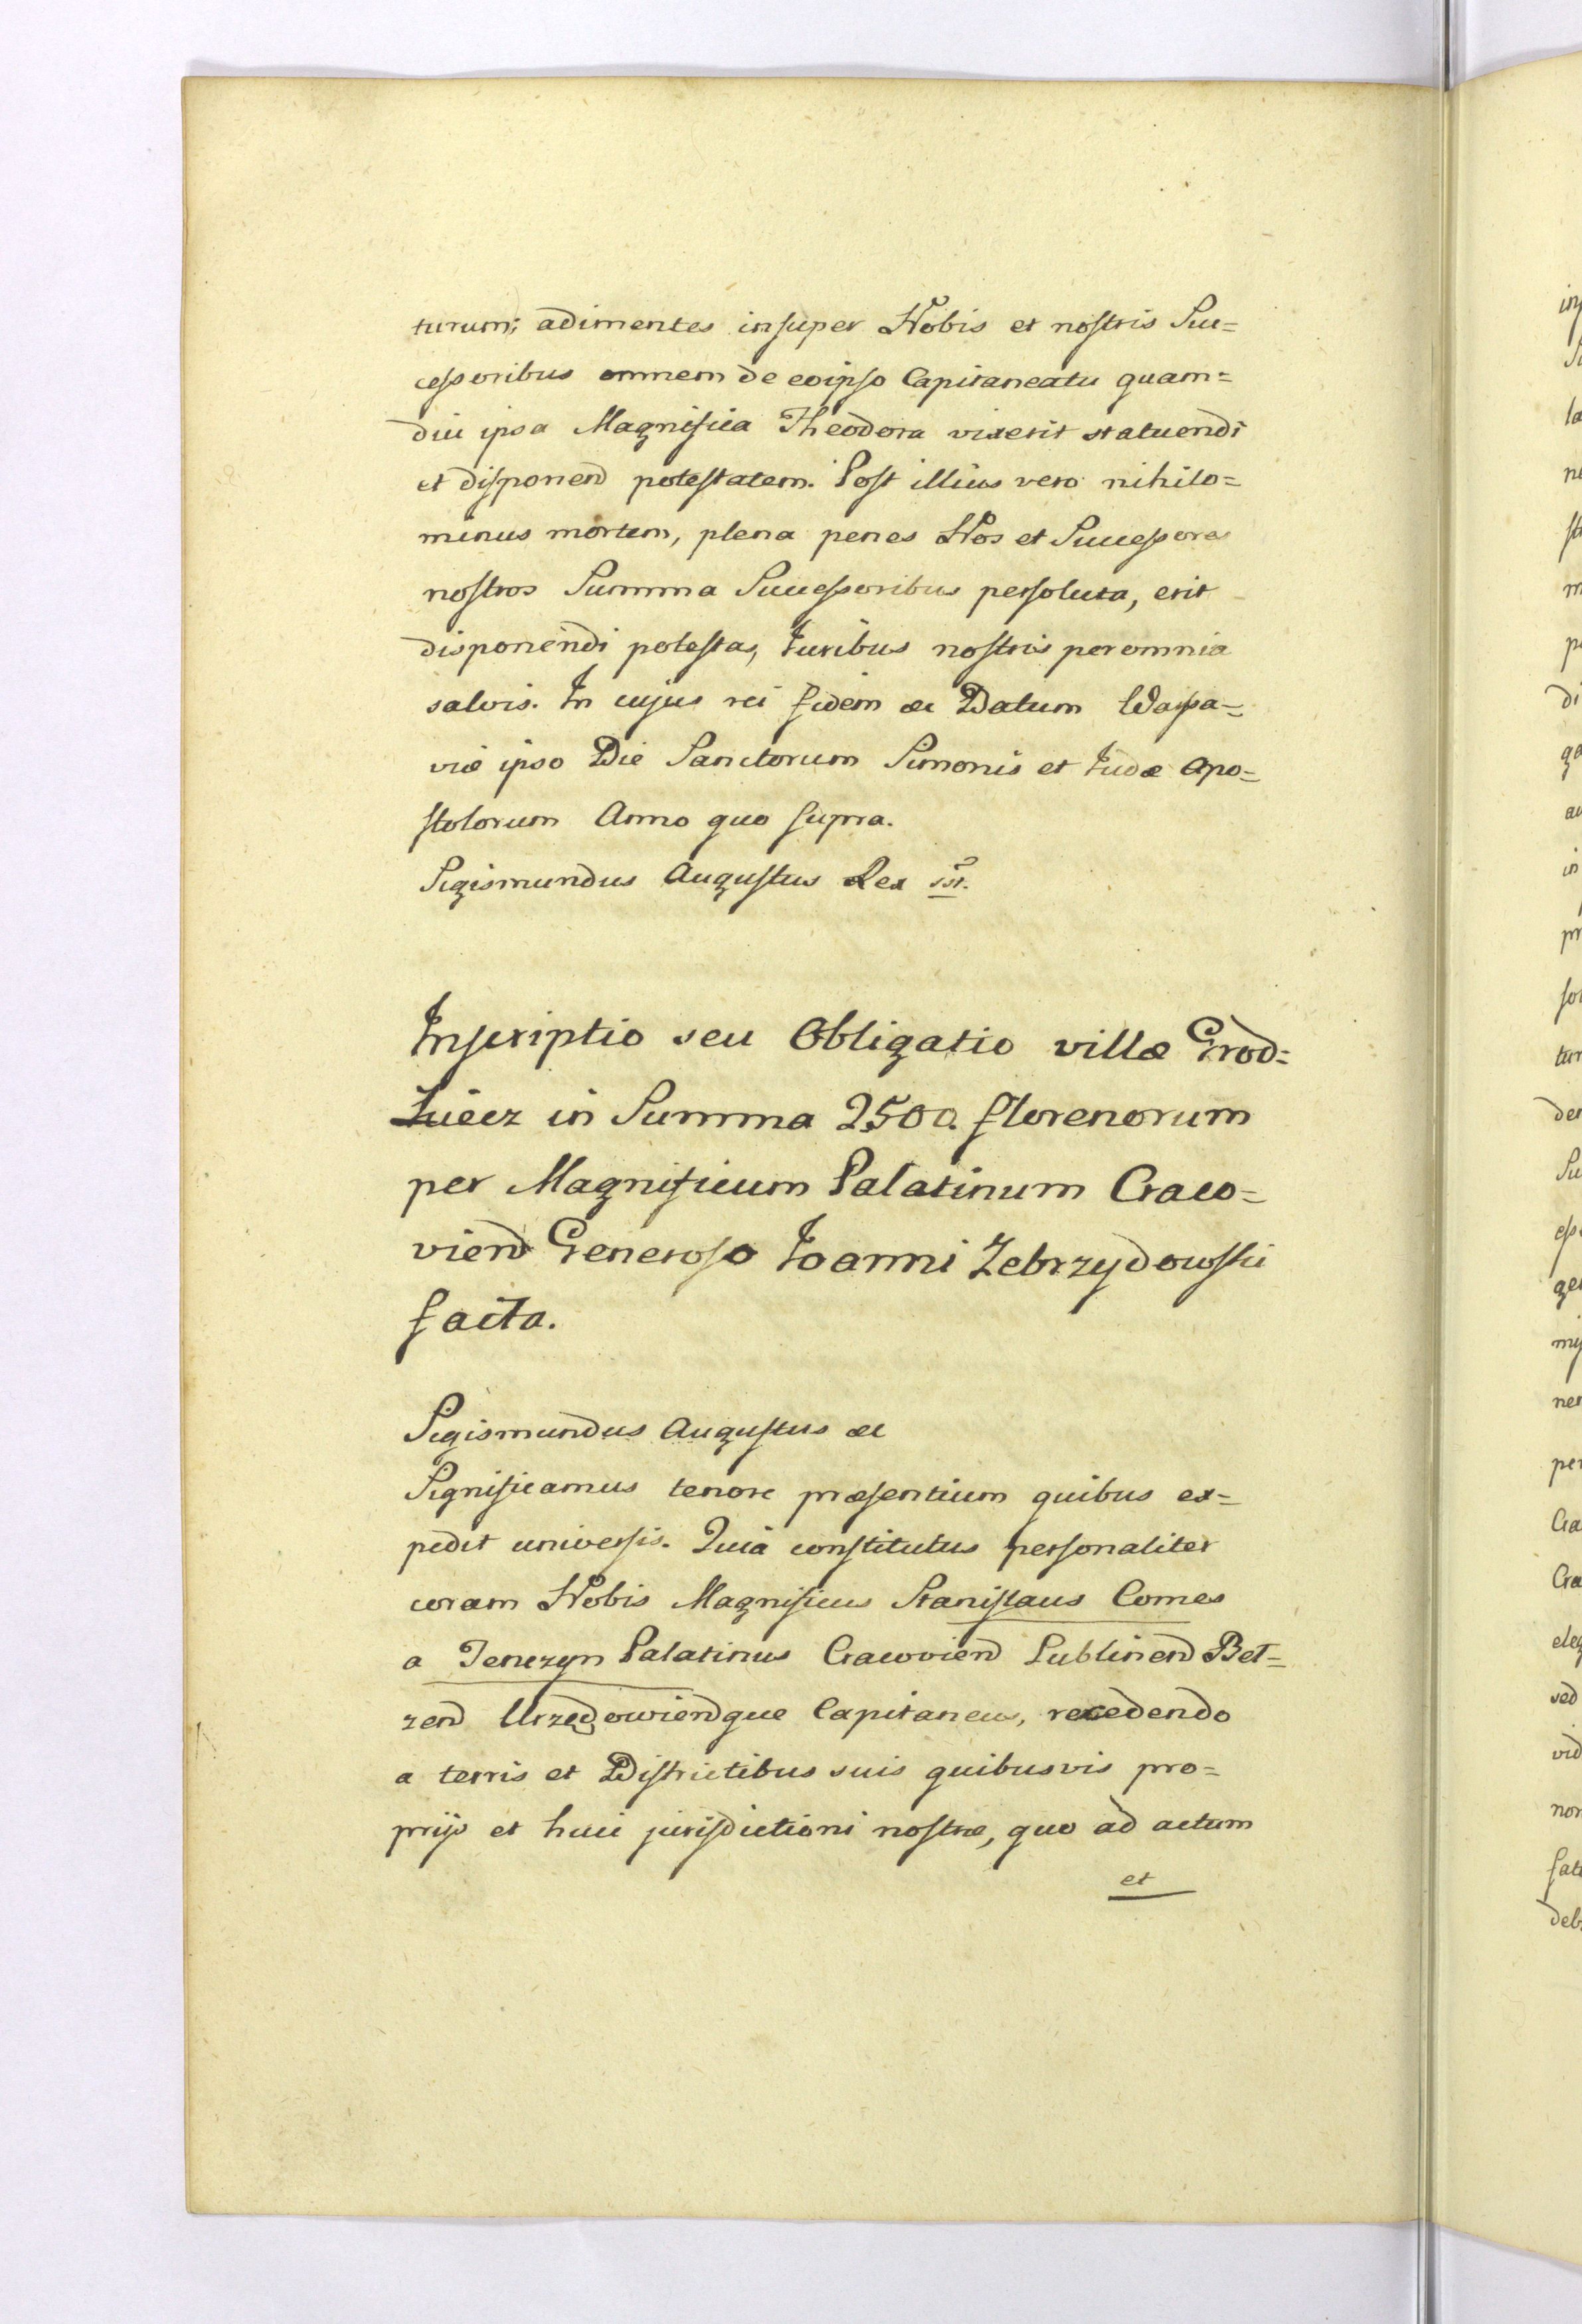 turum; adimentes insuper Nobis et nostris Suc=
cessoribus omnem de eoipso Capitaneatu quam=
diu ipsa Magnifica Theodora vixerit statuendi
et disponend potestatem. Post illius vero nihilo=
minus mortem, plena penes Nos et Successores
nostros Summa Successoribus persoluta, erit
disponendi potestas, Iuribus nostris per omnia
salvis. In cujus rei fidem &c Datum Warsa=
viæ ipso Die Sanctorum Simonis et Iudæ Apo=
stolorum Anno quo supra.
Sigismundus Augustus Rex sst.
Inscriptio seu Obligatio villæ Grod=
Luiecz in Summa 2500. florenorum
per Magnificum Palatinum Craco=
viend Generoso Ioanni Zebrzydowski
facta.
Sigismundus Augustus &c
Significamus tenore præsentium quibus ex=
pedit universis. Quia constitutus personaliter
coram Nobis Magnificus Stanislaus Comes
a Tenczyn Palatinus Cracoviend Lublinend Bel=
zend Urzędowiendque Capitaneus, recedendo
a terris et Districtibus suis quibusvis pro=
prijs et huic jurisdictioni nostræ, quo ad actum
et